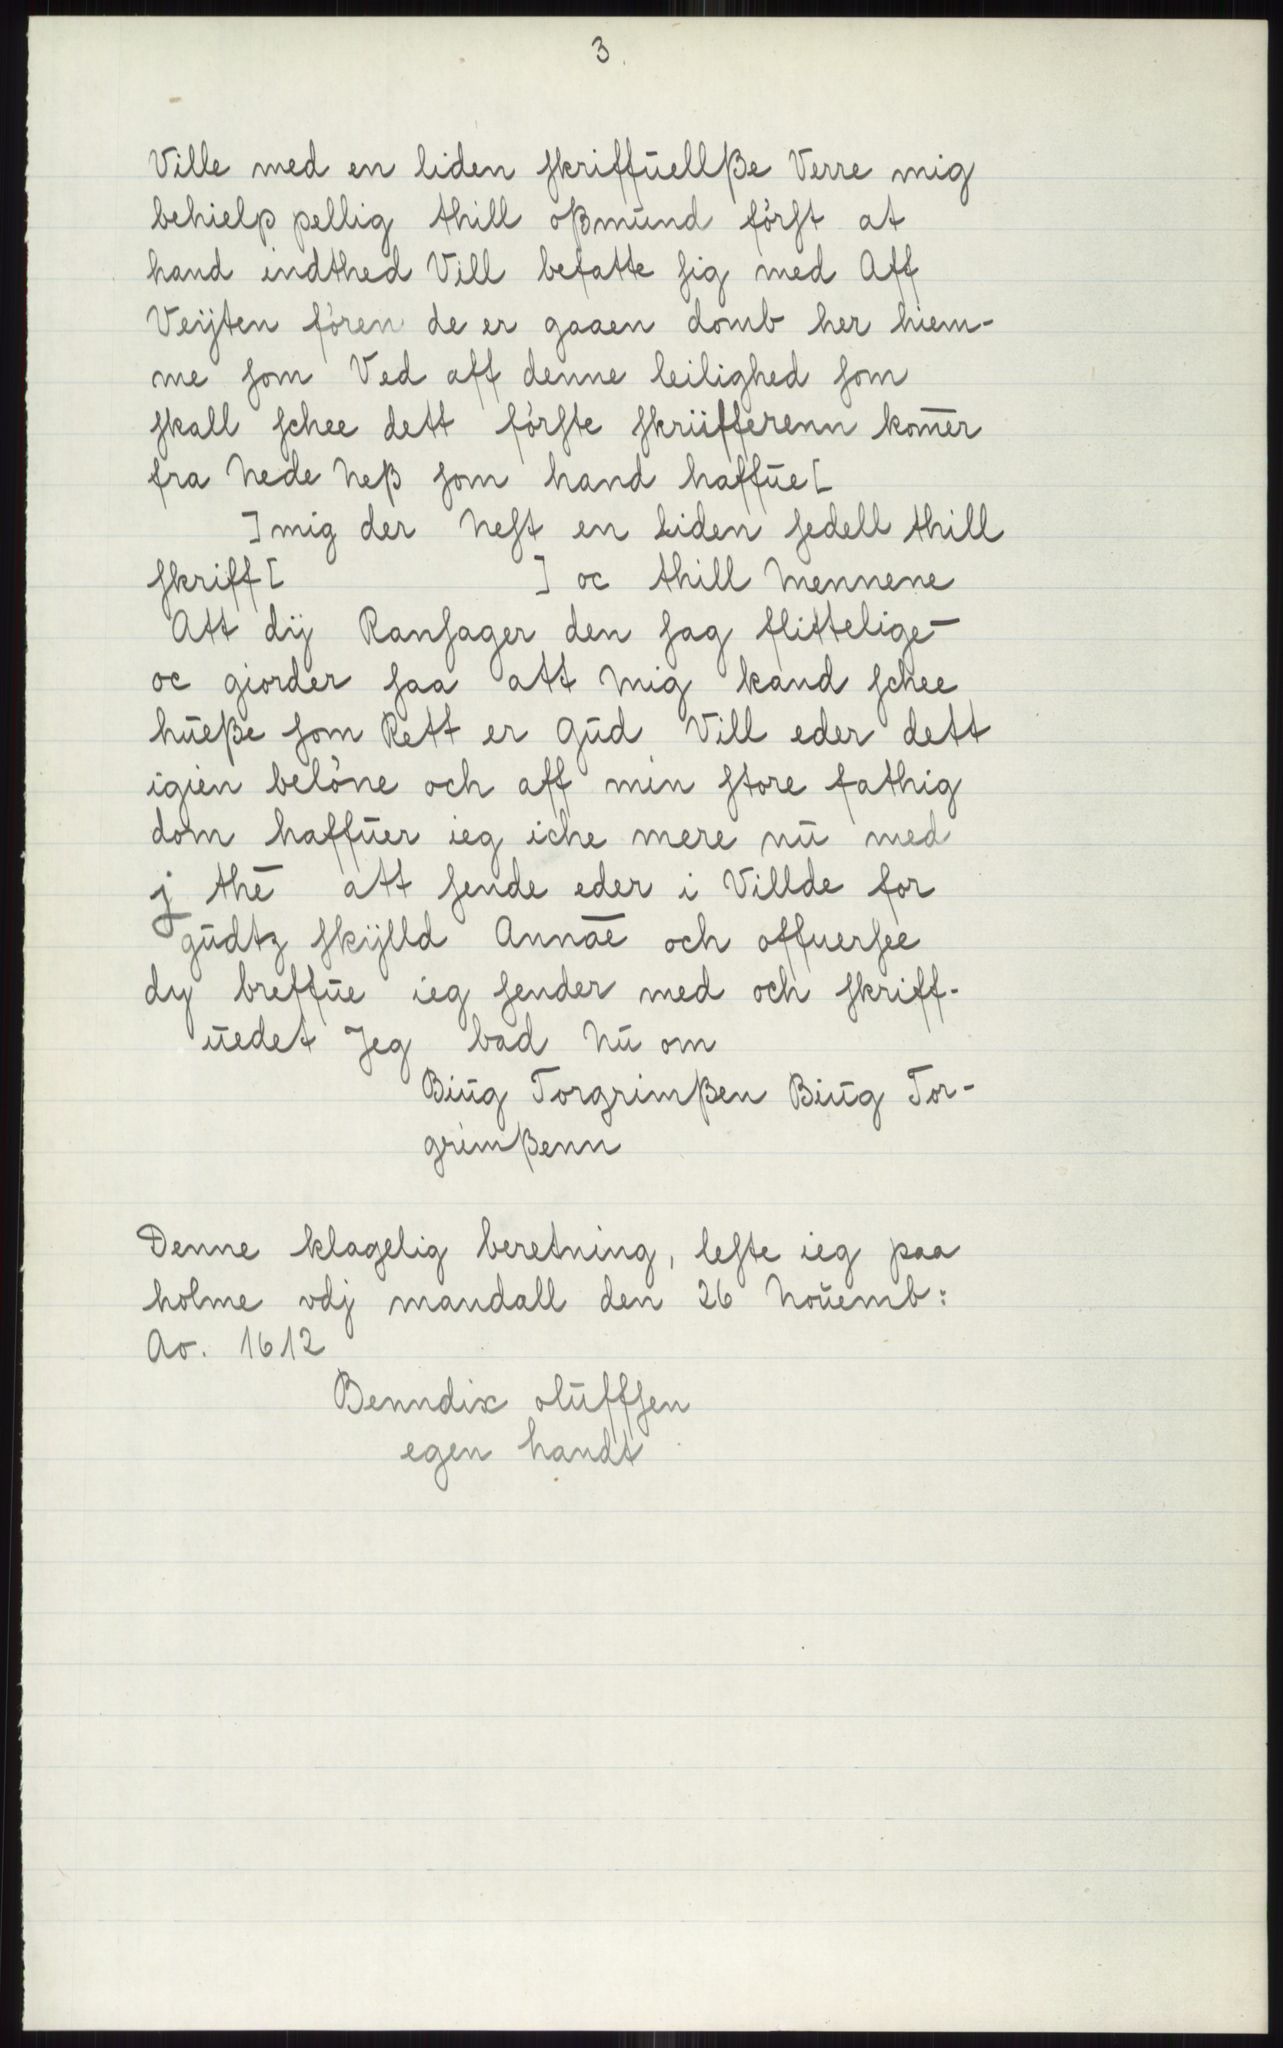 3.
Ville med en liden skriffŭellße Verre mig
behielp pellig thill oßmŭnd först at
hand indthed Vill befatte sig med Aff
Veÿten fören de er gaaen domb her hiem-
me som Ved aff denne leilighed som
skall schee dett förste skriifferenn kom̄er
fra Nede Neß som hand haffŭe[
] mig der Nest en liden sedell thill
skriff[ ] oc thill Mennene
Att dÿ Ransager den sag flittelige
oc giorder saa att Mig kand schee
hŭeße som Rett er Gŭd Vill eder dett
igien belöne och aff min store fathig
dom haffŭer ieg iche mere nŭ med
j thē att sende eder i Villde for
gŭdtz skÿlld Annāē och offuersee
dy breffŭe ieg sender med och skriff-
ŭedet Jeg bad Nŭ om
Biŭg Torgrimßen Biŭg Tor-
grimßenn
Denne klagelig beretning, leste ieg paa
holme vdj mandall den 26 Noŭemb:
Ao. 1612
Benndix olŭffsen
egen handt